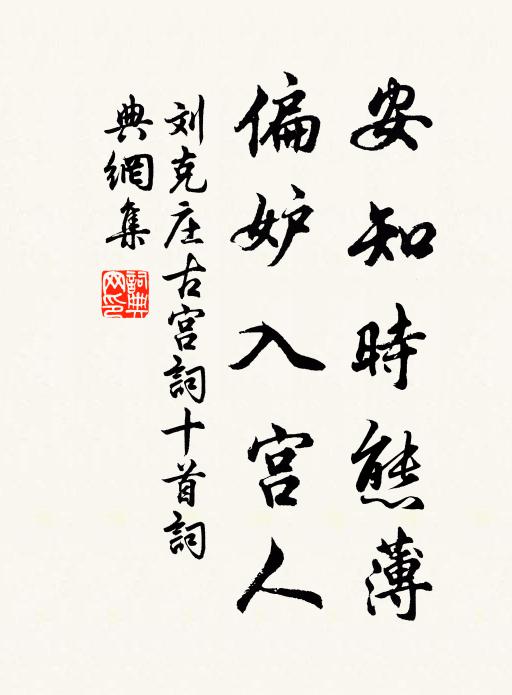 安知時態薄
偏妒入宫人
刘克庄古宫詞十首詞
典網集
詞典网印